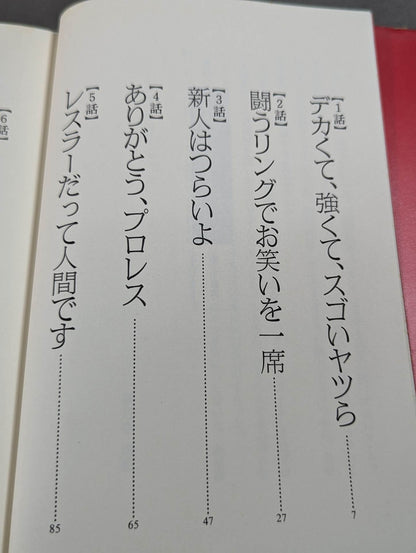 【1話】
デカくて、強くて、スゴいヤツら
7
【2話】
闘うリングでお笑いを一席
27
【3話】
新人はつらいよ
47
【4話】
ありがとう、プロレス
65
【5話】
レスラーだって人間です
85
6話】